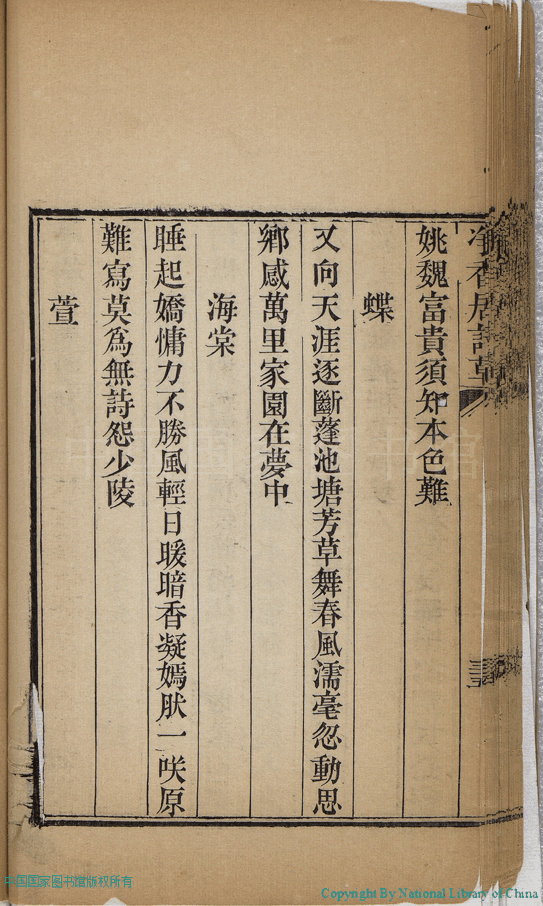 淨香居詩草
姚魏富貴須知本色難
蝶
又向天涯逐斷蓬池塘芳草舞春風濡毫忽動思
鄉感萬里家園在夢中
海棠
睡起嬌慵力不勝風輕日暖暗香凝嫣肰一咲原
難寫莫為無詩怨少陵
萱
中国国家图书馆版权所有
Copyright By National Library of China